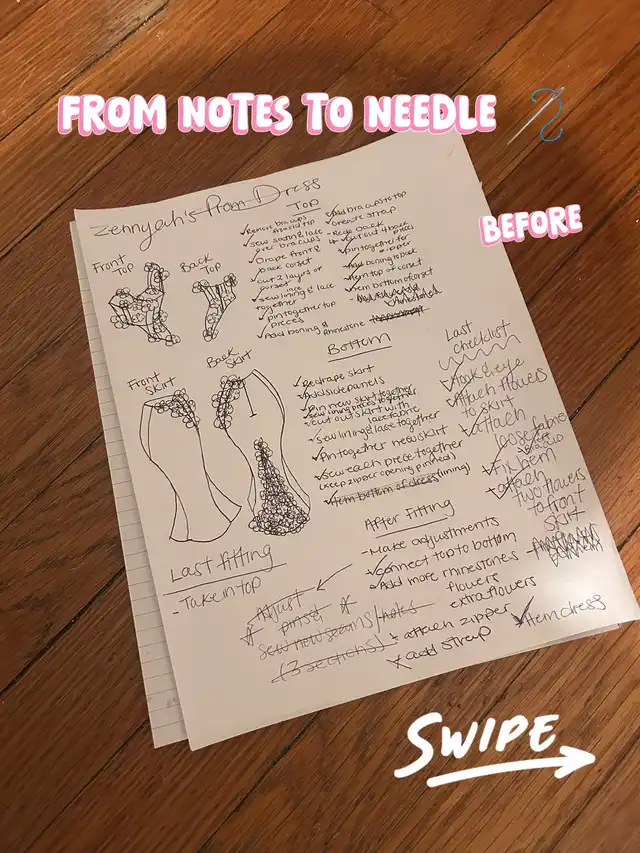 FROM NOTES TO NEEDLE
BEFORE
Zennyah's Prom Dress
Front
Top
Back
Top
Front
Skirt
Back
Skirt
Top
Remove bra cups
from old top
Sew satin & lace
over bra cups
Drape front &
back corset
cut 2 layers of
corset lace
sew lining & lace
together
pin together top
pieces
Add boning & Rhinestone
Add bra cups to top
create strap
cut out 4 back
pieces
pin together for
zipper
Add boning to back
Hem top of corset
Hem bottom of corset
Bottom
Redrape skirt
Add side panels
Pin new skirt together
sew lining pieces together
cut out skirt with
lace fabric
sew lining & lace together
Pin together new skirt
Sew each piece together
(keep zipper opening pinned)
Hem bottom of dress (lining)
After Fitting
- Make adjustments
connect top to bottom
Add more rhinestones
flowers
extra flowers
attach zipper
add strap
Hem dress
Last
checklist
Hook & eye
Attach flowers
to skirt
attach
loose fabric
Fix hem
attach
two flowers
to front
skirt
Last fitting
- Take in top
Adjust
pinset
sew new seams / notes
(3 sections)
SWIPE